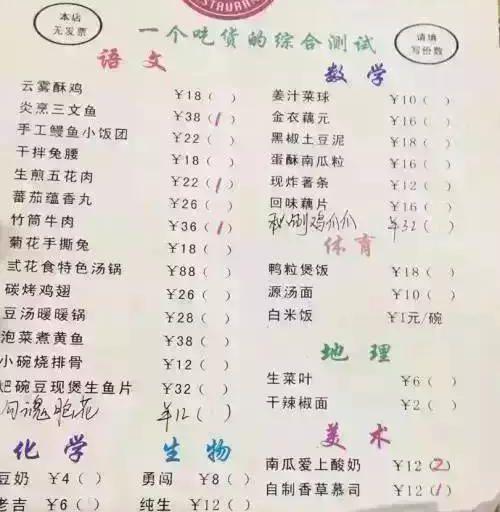 STAURAN
本店
无发票
一个吃货的综合测试
请填
写份数
语文
云雾酥鸡 ¥18( )
炎烹三文鱼 ¥38(1)
手工鳗鱼小饭团 ¥22( )
干拌兔腰 ¥18( )
生煎五花肉 ¥22(1)
蕃茄蕴香丸 ¥26( )
竹筒牛肉 ¥36(1)
菊花手撕兔 ¥18( )
弍花食特色汤锅 ¥88( )
碳烤鸡翅 ¥26( )
豆汤暖暖锅 ¥28( )
泡菜煮黄鱼 ¥38( )
小碗烧排骨 ¥12( )
粑碗豆现煲生鱼片 ¥32( )
勾魂脆花 ¥12( )
数学
姜汁菜球 ¥10( )
金衣藕元 ¥16( )
黑椒土豆泥 ¥18( )
蛋酥南瓜粒 ¥16( )
现炸薯条 ¥12( )
回味藕片 ¥16( )
鸡爪爪 ¥32( )
体育
鸭粒煲饭 ¥18( )
源汤面 ¥10( )
白米饭 ¥1元/碗
地理
生菜叶 ¥6( )
干辣椒面 ¥2( )
美术
南瓜爱上酸奶 ¥12(2)
自制香草慕司 ¥12(1)
化学
豆奶 ¥4( )
老吉 ¥6( )
生物
勇闯 ¥8( )
纯生 ¥12( )